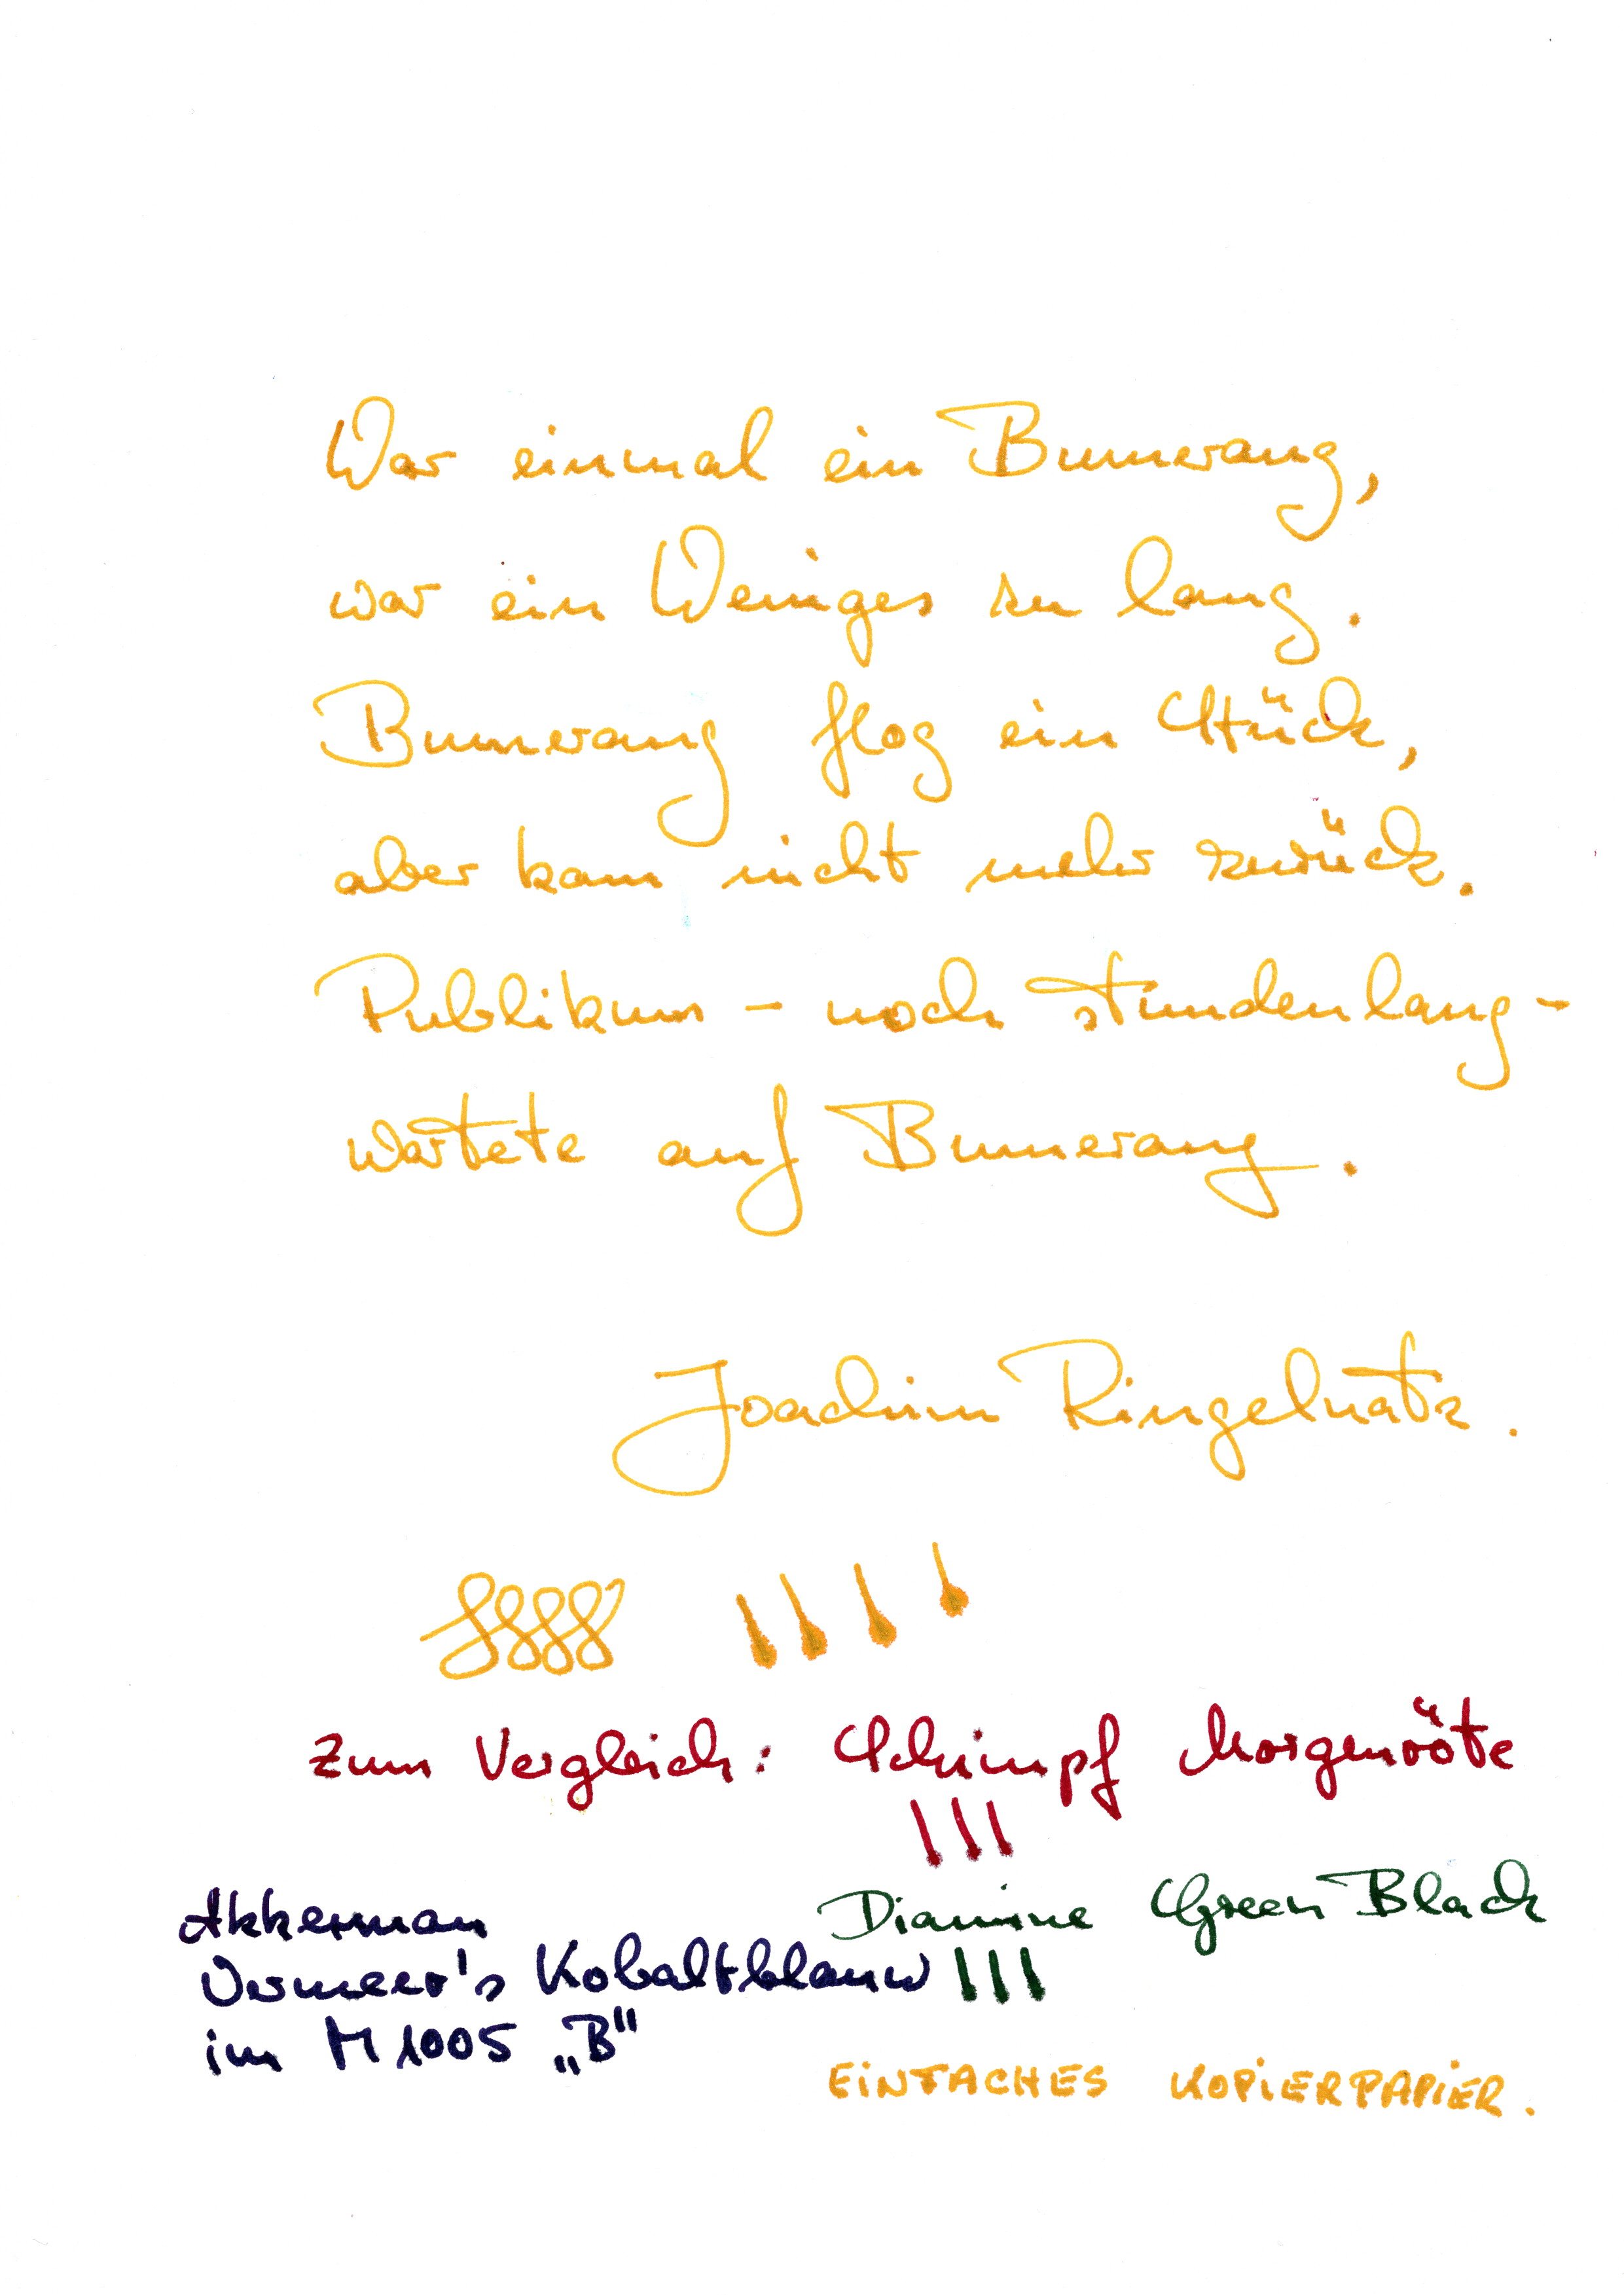 War einmal ein Bumerang,
war ein Weniges zu lang.
Bumerang flog ein Stück,
aber kam nicht mehr zurück.
Publikum – noch stundenlang –
wartete auf Bumerang.
Joachim Ringelnatz.
Zum Vergleich: Schimpf Morgenröte
Akkerman
Vermeer's Kobaltblauw
im M1005 „B"
Diamine Green Black
EINFACHES KOPIERPAPIER.